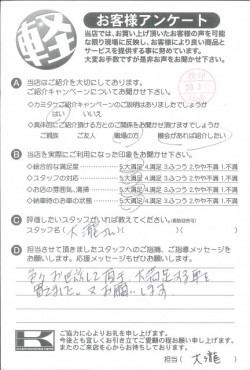 軽
お客様アンケート
当店では、お買い上げ頂いたお客様の声を可能な限り現場に反映し、お客様により良い商品とサービスを提供する事に努めています。
大変お手数ですが是非お声をお聞かせ下さい。
A 当店はご紹介を大切にしております。
ご紹介キャンペーンについてお聞かせ下さい。
◇カミタケご紹介キャンペーンのご説明はありましたでしょうか
はい いいえ
◇具体的にご紹介頂ける方とのご関係をお聞かせ頂けますでしょうか
ご親族 ご友人 職場の方 機会があれば紹介したい
B 当店を実際にご利用になった印象をお聞かせ下さい。
◇総合的な満足度 5.大満足 4.満足 3.ふつう 2.やや不満 1.不満
◇スタッフの対応 5.大満足 4.満足 3.ふつう 2.やや不満 1.不満
◇お店の雰囲気、清掃 5.大満足 4.満足 3.ふつう 2.やや不満 1.不満
◇納車時のお車の状態 5.大満足 4.満足 3.ふつう 2.やや不満 1.不満
C 評価したいスタッフがいれば教えてください。(複数回答可)
スタッフ名( 大瀧さん )
D 担当させて頂きましたスタッフへのご指摘、ご指導メッセージをお願いします。応援メッセージもぜひお願いします。
大満足
お願いします
K
ご協力に心よりお礼を申し上げます。
今後とも宜しくお引き立てご愛顧の程お願い申し上げます。
またのご来店を心からお待ちしております。
担当( 大瀧 )